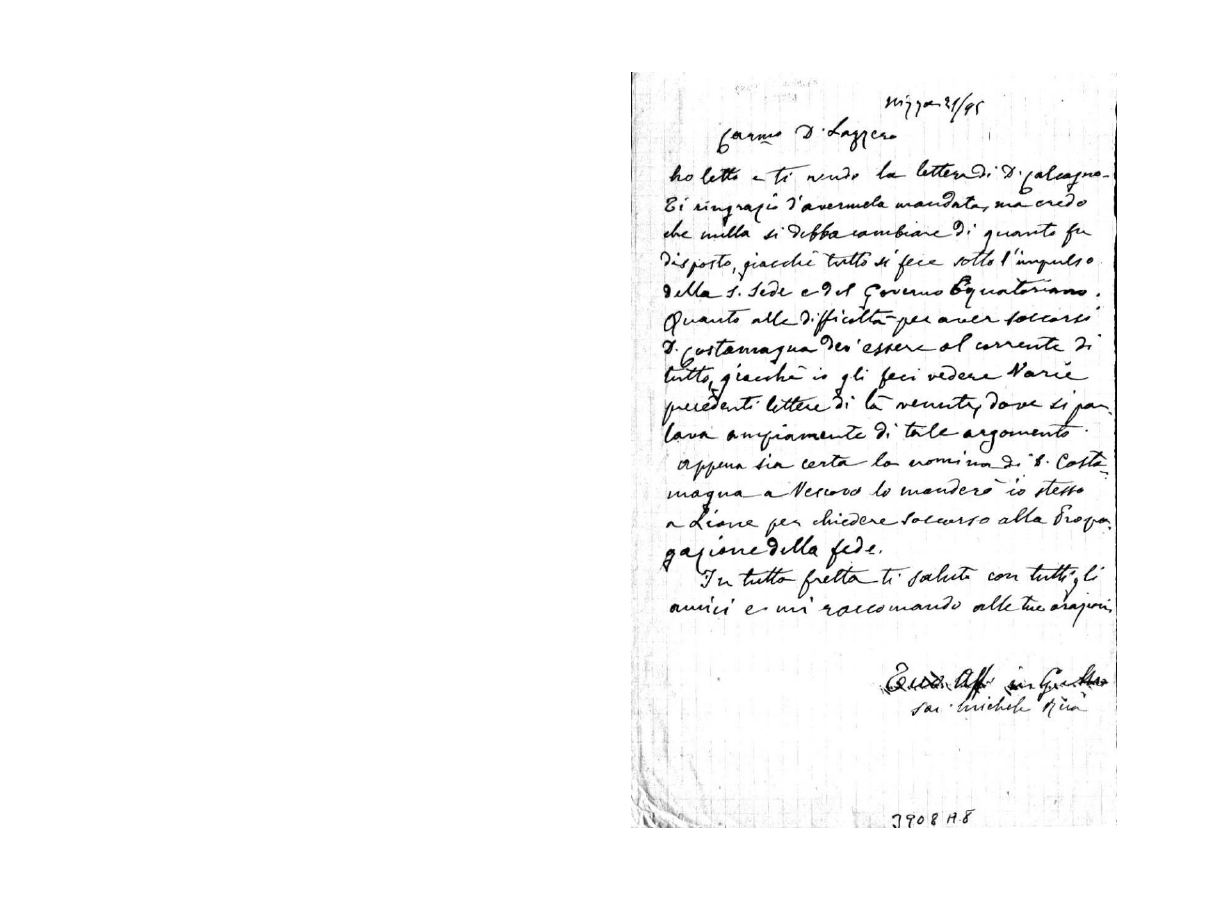 Nizza 21/95
Carmo D. Lazzero
ho letto e ti rendo la lettera di D. Calcagno.
Ti ringrazio d'avermela mandata, ma credo
che nulla si debba cambiare di quanto fu
disposto, giacchè tutto si fece sotto l'impulso
della S. Sede e del Governo Equatoriano.
Quanto alle difficoltà per aver soccorsi
D. Costamagna dev'essere al corrente di
tutto, giacchè io gli feci vedere varie
precedenti lettere di là venute, dove si par-
lava ampiamente di tale argomento.
Appena sia certa la nomina di D. Costa-
magna a Vescovo lo manderò io stesso
a Lione per chiedere soccorso alla Propa-
gazione della fede.
In tutta fretta ti saluto con tutti gli
amici e mi raccomando alle tue orazioni
Aff in G
Sac. Michele Rua
3908 A8